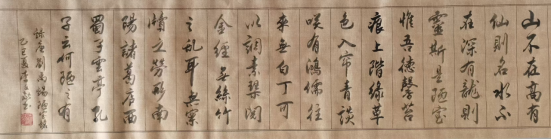 山不在高有
仙則名水不
在深有龍則
靈斯是陋室
惟吾德馨苔
痕上階綠草
色入帘青談
咲有鴻儒往
來無白丁可
以調素琴閱
金經無絲竹
之亂耳無案
牘之勞形南
陽諸葛廬西
蜀子雲亭孔
子云何陋之有
唐劉禹錫陋室銘
乙巳夏